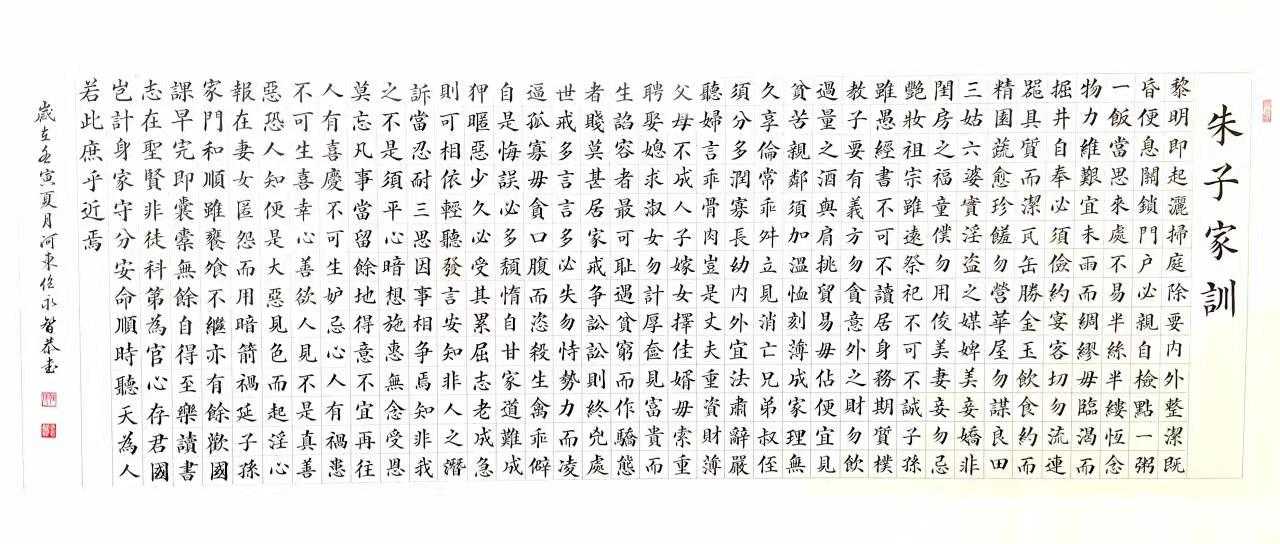 朱子家訓
黎明即起灑掃庭除要内外整潔既
昏便息關鎖門户必親自檢點一粥
一飯當思來處不易半絲半縷恆念
物力維艱宜未雨而綢繆毋臨渴而
掘井自奉必須儉約宴客切勿流連
器具質而潔瓦缶勝金玉飲食約而
精園蔬愈珍饈勿營華屋勿謀良田
三姑六婆實淫盜之媒婢美妾嬌非
閨房之福童僕勿用俊美妻妾勿忌
艷妝祖宗雖遠祭祀不可不誠子孫
雖愚經書不可不讀居身務期質樸
教子要有義方勿貪意外之財勿飲
過量之酒與肩挑貿易毋佔便宜見
貧苦親鄰須加溫恤刻薄成家理無
久享倫常乖舛立見消亡兄弟叔侄
須分多潤寡長幼内外宜法肅辭嚴
聽婦言乖骨肉豈是丈夫重資財薄
父母不成人子嫁女擇佳婿毋索重
聘娶媳求淑女勿計厚奩見富貴而
生諂容者最可耻遇貧窮而作驕態
者賤莫甚居家戒争訟訟則終兇處
世戒多言言多必失勿恃勢力而凌
逼孤寡毋貪口腹而恣殺生禽乖僻
自是悔誤必多頹惰自甘家道難成
狎暱惡少久必受其累屈志老成急
則可相依輕聽發言安知非人之譖
訴當忍耐三思因事相争焉知非我
之不是須平心暗想施惠無念受恩
莫忘凡事當留餘地得意不宜再往
人有喜慶不可生妒忌心人有禍患
不可生喜幸心善欲人見不是真善
惡恐人知便是大惡見色而起淫心
報在妻女匿怨而用暗箭禍延子孫
家門和順雖饔飧不繼亦有餘歡國
課早完即囊橐無餘自得至樂讀書
志在聖賢非徒科第為官心存君國
豈計身家守分安命順時聽天為人
若此庶乎近焉
歲在壬寅夏月河東任永智恭書